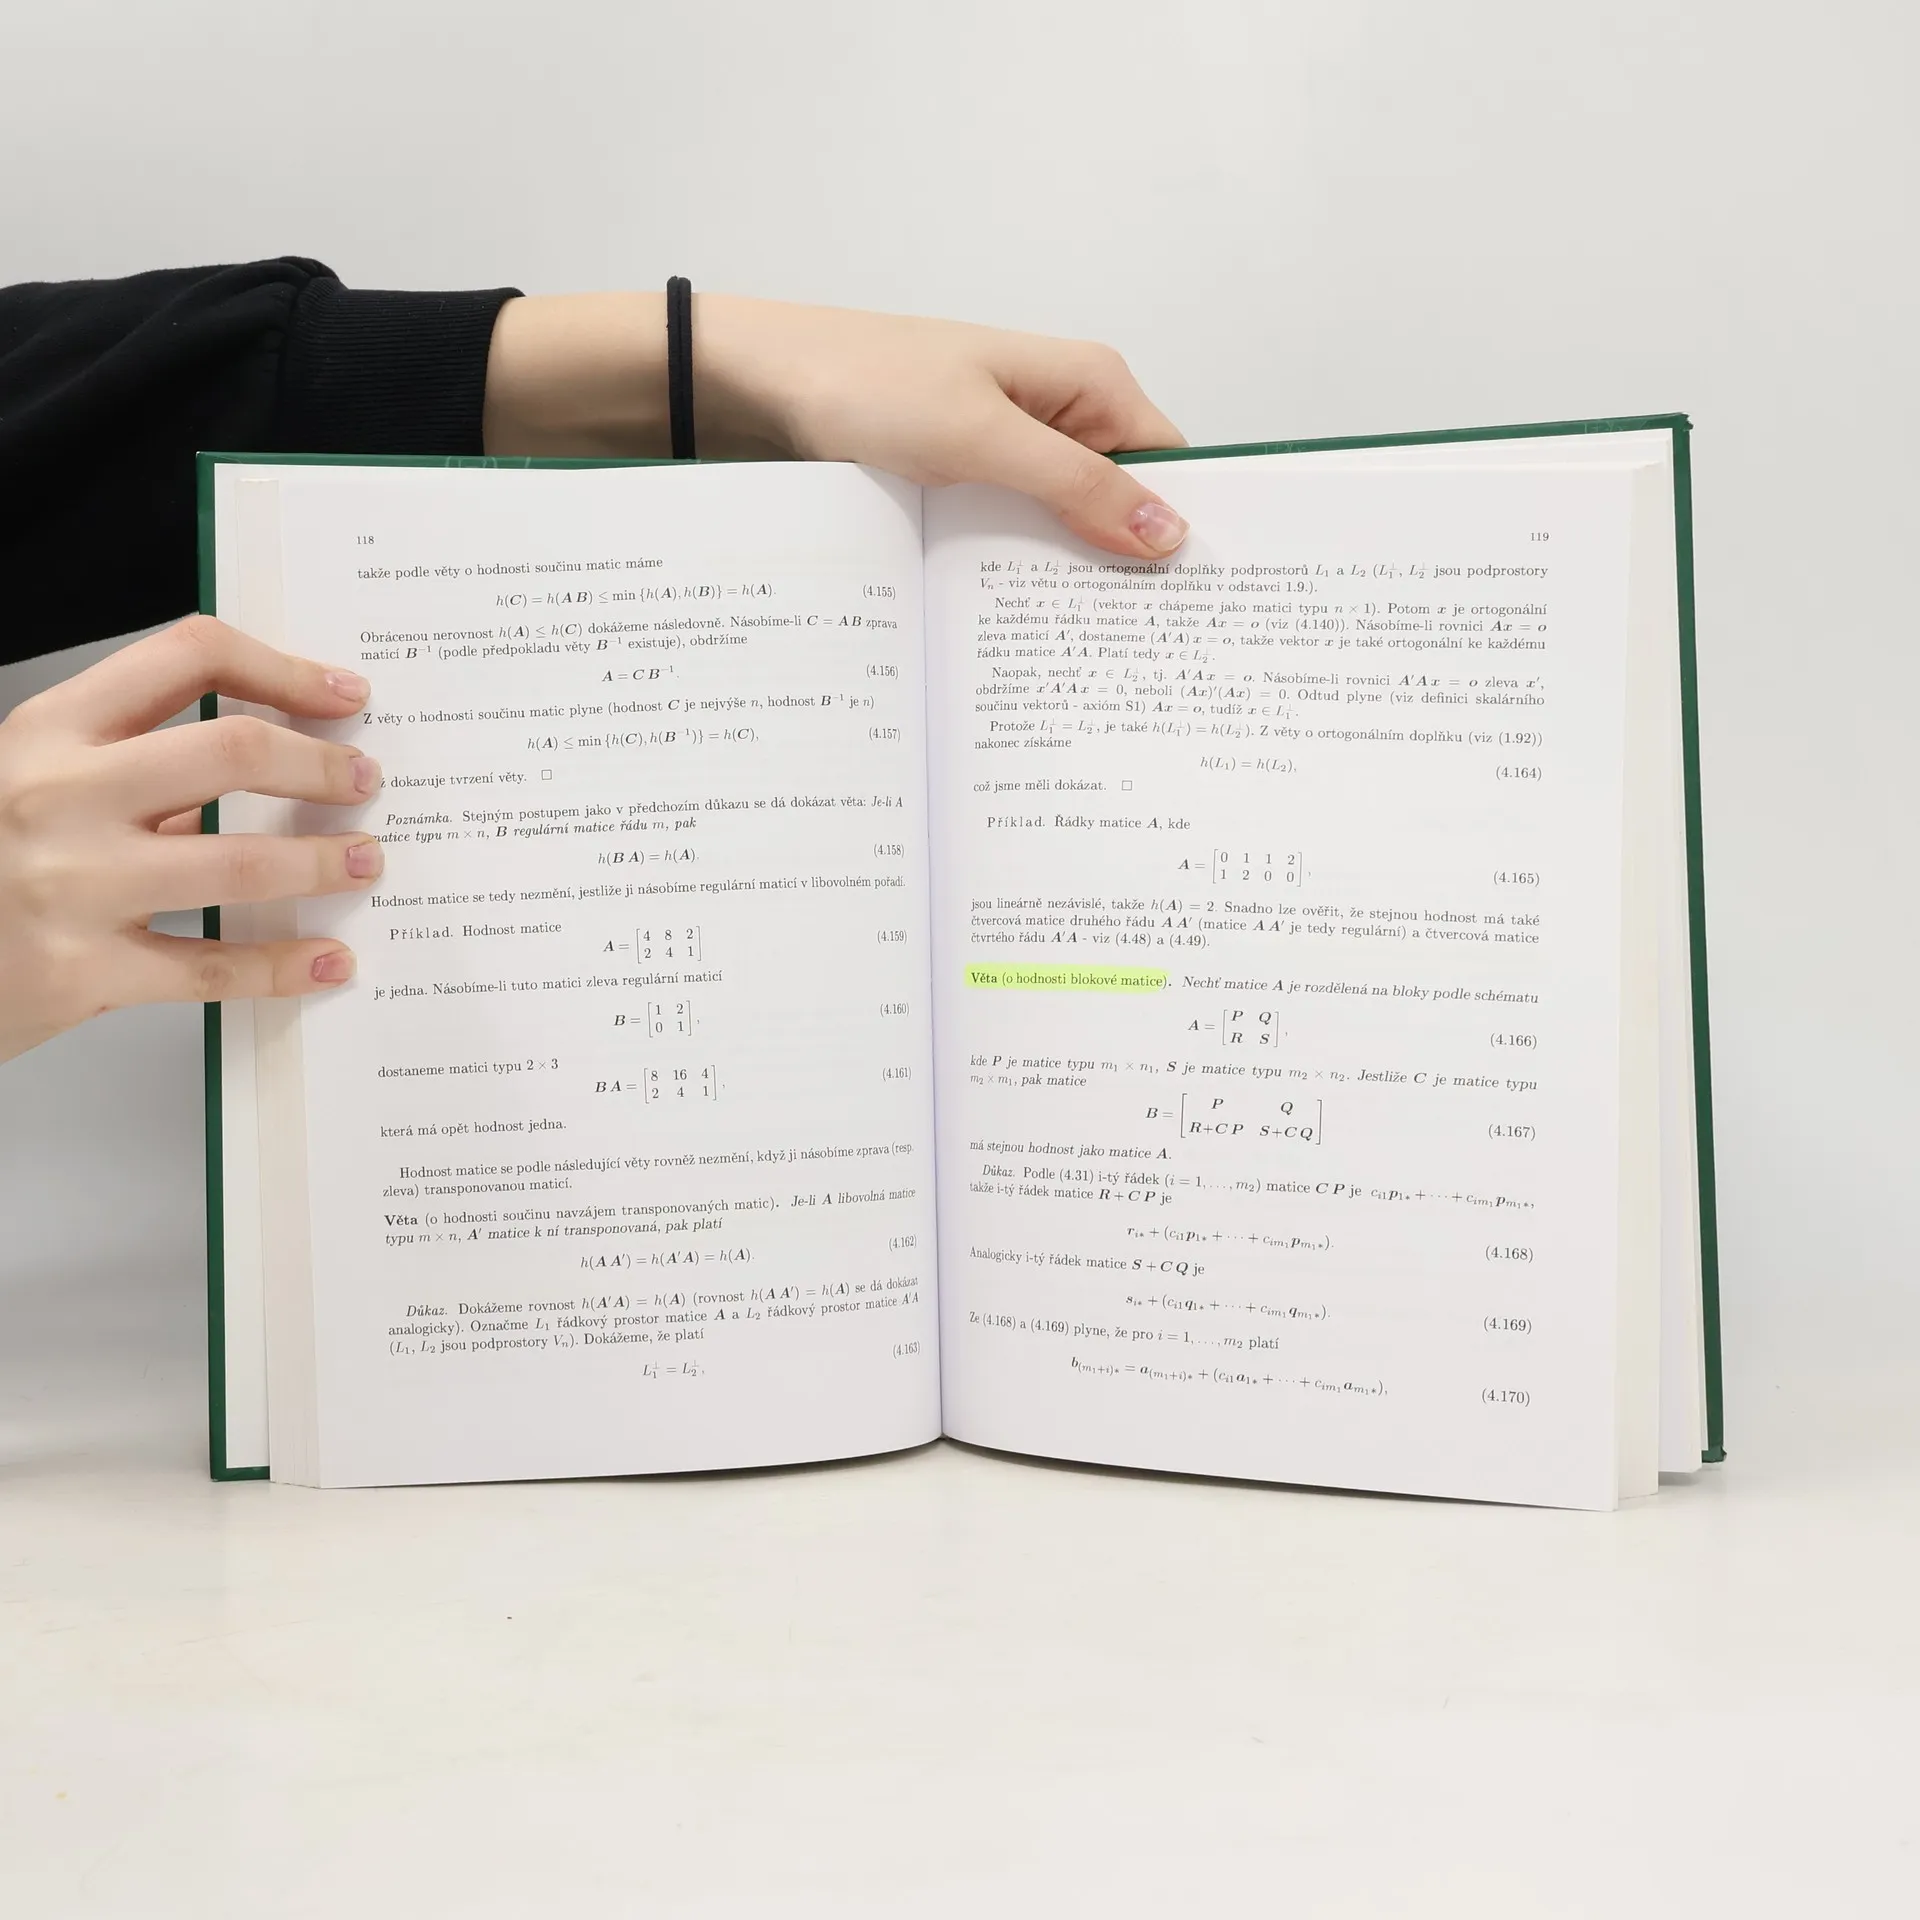 118
takže podle věty o hodnosti součinu matic máme
h(C) = h(A B) ≤ min {h(A), h(B)} = h(A). (4.155)
Obrácenou nerovnost h(A) ≤ h(C) dokážeme následovně. Násobíme-li C = A B zprava
maticí B⁻¹ (podle předpokladu věty B⁻¹ existuje), obdržíme
A = C B⁻¹. (4.156)
Z věty o hodnosti součinu matic plyne (hodnost C je nejvýše n, hodnost B⁻¹ je n)
h(A) ≤ min {h(C), h(B⁻¹)} = h(C), (4.157)
ž dokazuje tvrzení věty. □
Poznámka. Stejným postupem jako v předchozím důkazu se dá dokázat věta: Je-li A
matice typu m × n, B regulární matice řádu m, pak
h(B A) = h(A). (4.158)
Hodnost matice se tedy nezmění, jestliže ji násobíme regulární maticí v libovolném pořadí.
Příklad. Hodnost matice
A = [4 8 2 (4.159)
2 4 1]
je jedna. Násobíme-li tuto matici zleva regulární maticí
B = [1 2 (4.160)
0 1],
dostaneme matici typu 2 × 3
B A = [8 16 4 (4.161)
2 4 1],
která má opět hodnost jedna.
Hodnost matice se podle následující věty rovněž nezmění, když ji násobíme zprava (resp.
zleva) transponovanou maticí.
Věta (o hodnosti součinu navzájem transponovaných matic). Je-li A libovolná matice
typu m × n, A′ matice k ní transponovaná, pak platí
h(A A′) = h(A′A) = h(A). (4.162)
Důkaz. Dokážeme rovnost h(A′A) = h(A) (rovnost h(A A′) = h(A) se dá dokázat
analogicky). Označme L₁ řádkový prostor matice A a L₂ řádkový prostor matice A′A
(L₁, L₂ jsou podprostory Vₙ). Dokážeme, že platí
L₁⊥ = L₂⊥, (4.163)
119
kde L₁⊥ a L₂⊥ jsou ortogonální doplňky podprostorů L₁ a L₂ (L₁⊥, L₂⊥ jsou podprostory
Vₙ - viz větu o ortogonálním doplňku v odstavci 1.9.).
Nechť x ∈ L₁⊥ (vektor x chápeme jako matici typu n × 1). Potom x je ortogonální
ke každému řádku matice A, takže Ax = o (viz (4.140)). Násobíme-li rovnici Ax = o
zleva maticí A′, dostaneme (A′A) x = o, takže vektor x je také ortogonální ke každému
řádku matice A′A. Platí tedy x ∈ L₂⊥.
Naopak, nechť x ∈ L₂⊥, tj. A′A x = o. Násobíme-li rovnici A′A x = o zleva x′,
obdržíme x′A′A x = 0, neboli (Ax)′(Ax) = 0. Odtud plyne (viz definici skalárního
součinu vektorů - axióm S1) Ax = o, tudíž x ∈ L₁⊥.
Protože L₁⊥ = L₂⊥, je také h(L₁⊥) = h(L₂⊥). Z věty o ortogonálním doplňku (viz (1.92))
nakonec získáme
h(L₁) = h(L₂), (4.164)
což jsme měli dokázat. □
Příklad. Řádky matice A, kde
A = [0 1 1 2
1 2 0 0], (4.165)
jsou lineárně nezávislé, takže h(A) = 2. Snadno lze ověřit, že stejnou hodnost má také
čtvercová matice druhého řádu A A′ (matice A A′ je tedy regulární) a čtvercová matice
čtvrtého řádu A′A - viz (4.48) a (4.49).
Věta (o hodnosti blokové matice). Nechť matice A je rozdělená na bloky podle schématu
A = [P Q
R S], (4.166)
kde P je matice typu m₁ × n₁, S je matice typu m₂ × n₂. Jestliže C je matice typu
m₂ × m₁, pak matice
B = [P Q
R+C P S+C Q] (4.167)
má stejnou hodnost jako matice A.
Důkaz. Podle (4.31) i-tý řádek (i = 1, . . . , m₂) matice C P je cᵢ₁p₁* + · · · + cᵢₘ₁pₘ₁*,
takže i-tý řádek matice R + C P je
rᵢ* + (cᵢ₁p₁* + · · · + cᵢₘ₁pₘ₁*). (4.168)
Analogicky i-tý řádek matice S + C Q je
sᵢ* + (cᵢ₁q₁* + · · · + cᵢₘ₁qₘ₁*). (4.169)
Ze (4.168) a (4.169) plyne, že pro i = 1, . . . , m₂ platí
b₍ₘ₁₊ᵢ₎* = a₍ₘ₁₊ᵢ₎* + (cᵢ₁a₁* + · · · + cᵢₘ₁aₘ₁*), (4.170)